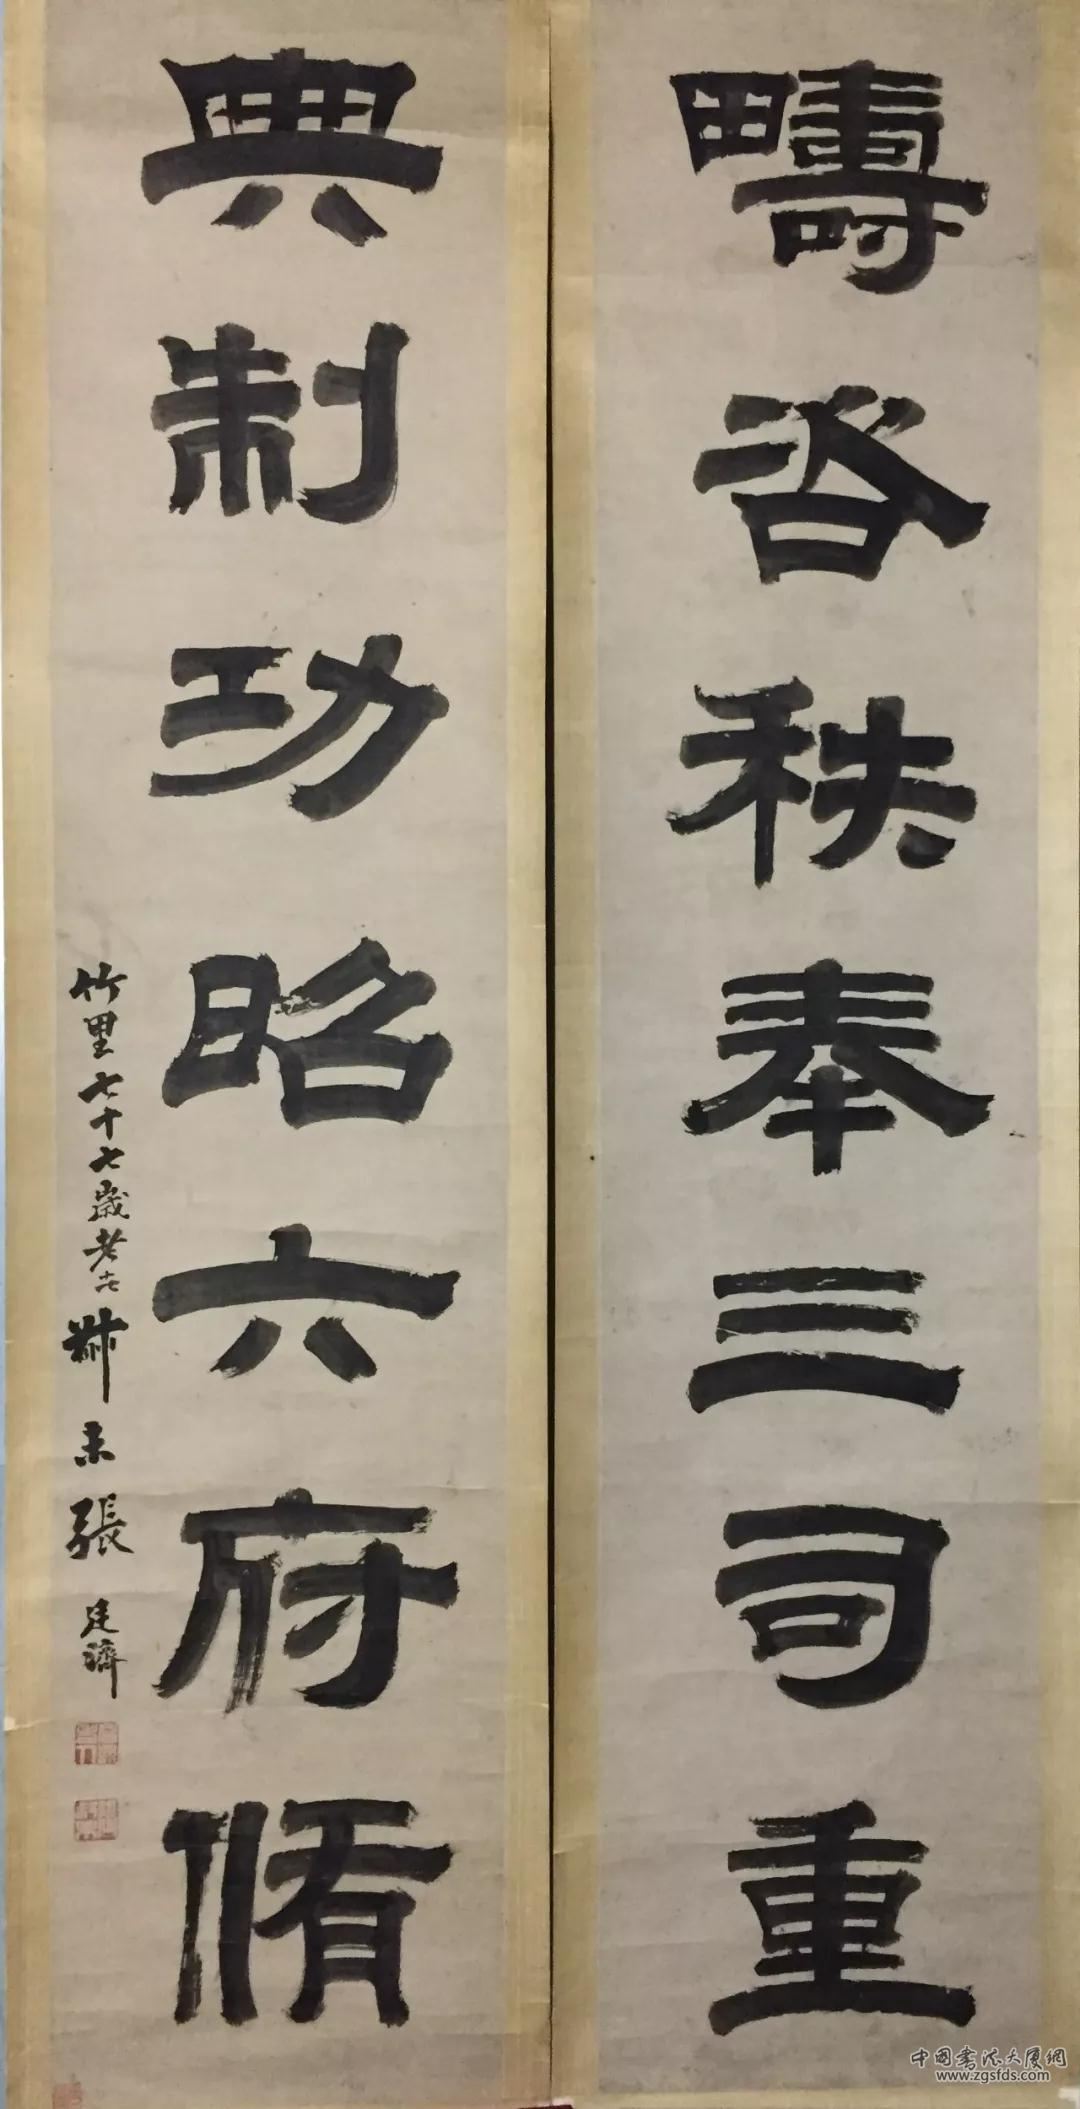 疇咨秩奉三司重
典制功昭六府脩
竹里七十七歲老者叔未張廷濟
中国书法大厦網
www.zgsfds.com